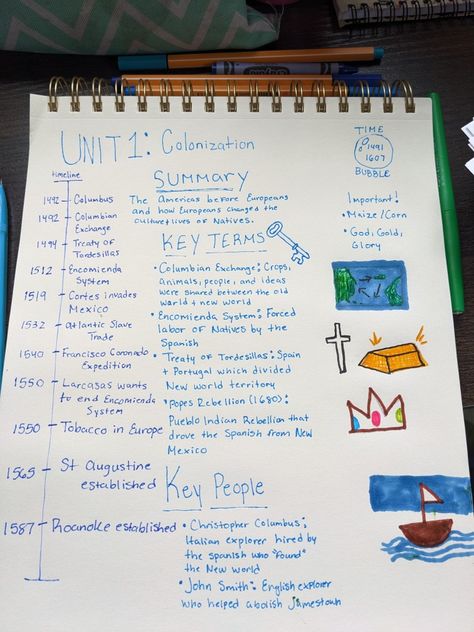 UNIT 1: Colonization
TIME
1491
1607
BUBBLE
timeline
1492 Columbus
1492 Columbian
Exchange
1494 Treaty of
Tordesillas
1512 Encomienda
System
1519 Cortes invades
Mexico
1532 atlantic Slave
Trade
1540 Francisco Coronado
Expedition
1550 Larcasas wants
to end Encomienda
System
1550 Tobacco in Europe
1565 St Augustine
established
1587 Roanoke established
SUMMARY
The Americas before Europeans
and how Europeans changed the
culture/lives of Natives.
KEY TERMS
• Columbian Exchange: Crops,
animals, people, and ideas
were shared between the old
world + new world
• Encomienda System: Forced
labor of Natives by the
Spanish
• Treaty of Tordesillas: Spain
+ Portugal which divided
New world territory
• Popes Rebellion (1680):
Pueblo Indian Rebellion that
drove the Spanish from New
Mexico
Key People
• Christopher Columbus:
Italian explorer hired by
the spanish who "found"
the New world
• John Smith: English explorer
who helped abolish jamestown
Important!
• Maize/Corn
• God, Gold,
Glory